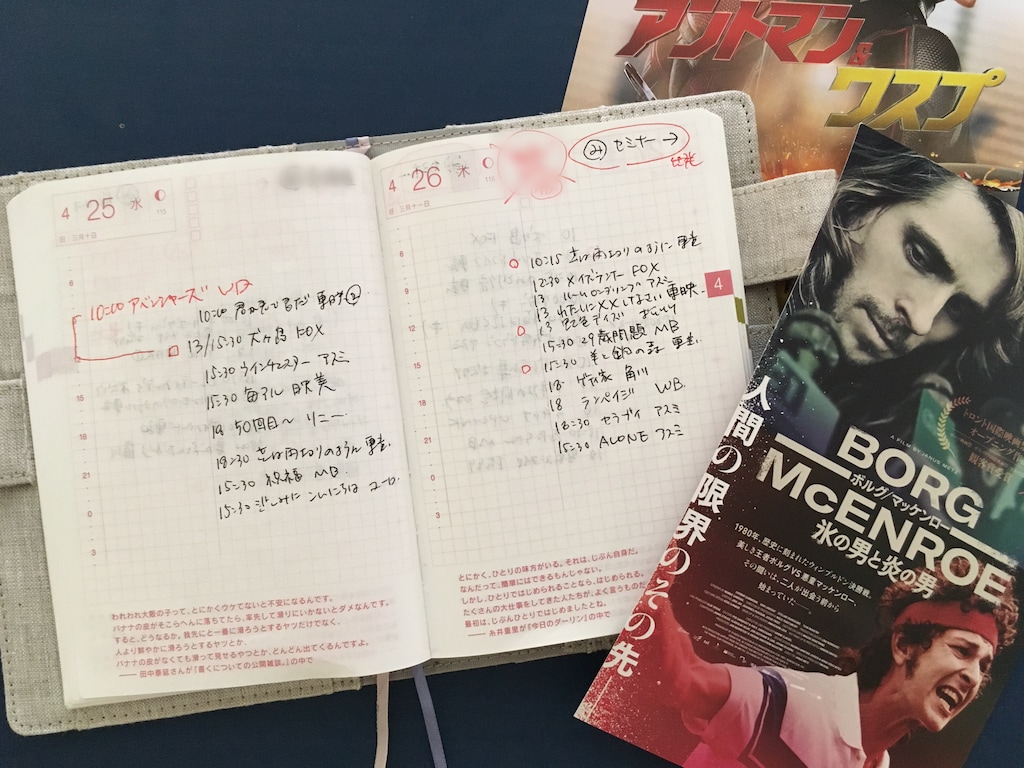 4 25 水 115
旧 三月十日
6
9
12
15
18
21
0
3
10:00 アベンジャーズ WD
10:00 君が君で君だ 東映②
13/15:30 犬ヶ島 FOX
15:30 ウインチェスター アスミ
15:30 毎アル 映美
18 50回目〜 リニー
18:30 恋は雨上がりのように 東宝
15:30 祝福 MB
15:30 悲しみに こんにちは ユーロ
われわれ大阪の子って、とにかくウケてないと不安になるんです。
バナナの皮がそこらへんに落ちてたら、率先して滑りにいかないとダメなんです。
すると、どうなるか。我先にと一番に滑ろうとするヤツだけでなく、
人より鮮やかに滑ろうとするヤツとか、
バナナの皮がなくても滑って見せるやつとか、どんどん出てくるんですよ。
—— 田中泰延さんが『書くについての公開雑談。』の中で
4 26 木 116
旧 三月十一日
み セミナー →
6
9
12
15
18
21
0
3
10:15 恋は雨上がりのように 東宝
12:30 メイズランナー FOX
13 アスミ
13 わたしに××しなさい 東映
13
15:30 29歳問題 MB
15:30 羊と鋼の森 東宝
18 角川
18 ランペイジ WB
18:30 アスミ
15:30 ALONE アスミ
4
とにかく、ひとりの味方がいる。それは、じぶん自身だ。
なんだって、簡単にはできるもんじゃない。
しかし、ひとりではじめられることなら、はじめられる。
たくさんの大仕事をしてきた人たちが、よく言うものだ
最初は、じぶんひとりではじめましたとね。
—— 糸井重里が『今日のダーリン』の中で
アントマン&
ワスプ
トロント国際映画
オープニング
観客賞
A FILM BY JANUS METZ
BORG
ボルグ/マッケンロー
McENROE
氷の男と炎の男
人間の限界のその先
1980年、歴史に刻まれたウィンブルドン決勝戦。
美しき王者ボルグVS悪童マッケンロー、
その闘いは、二人が出会う前から
始まっていた——